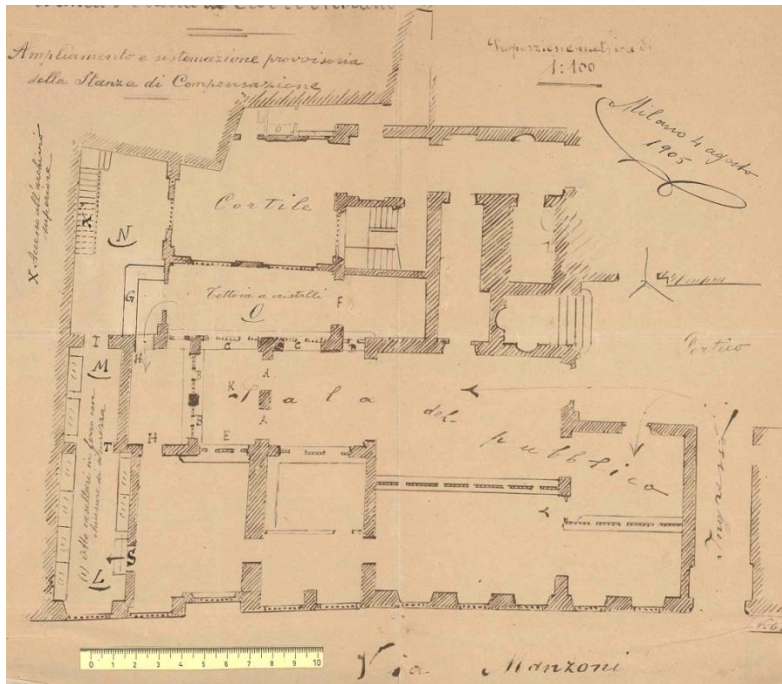 Ampliamento e sistemazione provvisoria
della Stanza di Compensazione
Proporzione metrica di
1:100
Milano 4 agosto
1905
X Accesso all'archivio
superiore
X
N
Cortile
G
Tettoia a cristalli
O
F
Portico
I
M
H
C
C
K
A
A
Sala
del
pubblico
Ingresso
I
H
E
(1) Alti casellari in ferro con
chiusure di sicurezza
(1)
(1)
S
L
0 1 2 3 4 5 6 7 8 9 10
Via Manzoni